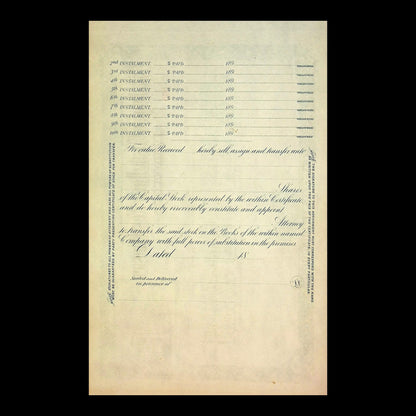 2nd INSTALMENT $ PAID 189
3rd INSTALMENT $ PAID 189
4th INSTALMENT $ PAID 189
5th INSTALMENT $ PAID 189
6th INSTALMENT $ PAID 189
7th INSTALMENT $ PAID 189
8th INSTALMENT $ PAID 189
9th INSTALMENT $ PAID 189
10th INSTALMENT $ PAID 189
For value Received hereby sell, assign and transfer unto
Shares
of the Capital Stock represented by the within Certificate
and do hereby irrevocably constitute and appoint
Attorney
to transfer the said stock on the Books of the within named
Company with full power of substitution in the premises
Dated 18
Sealed and Delivered
in presence of